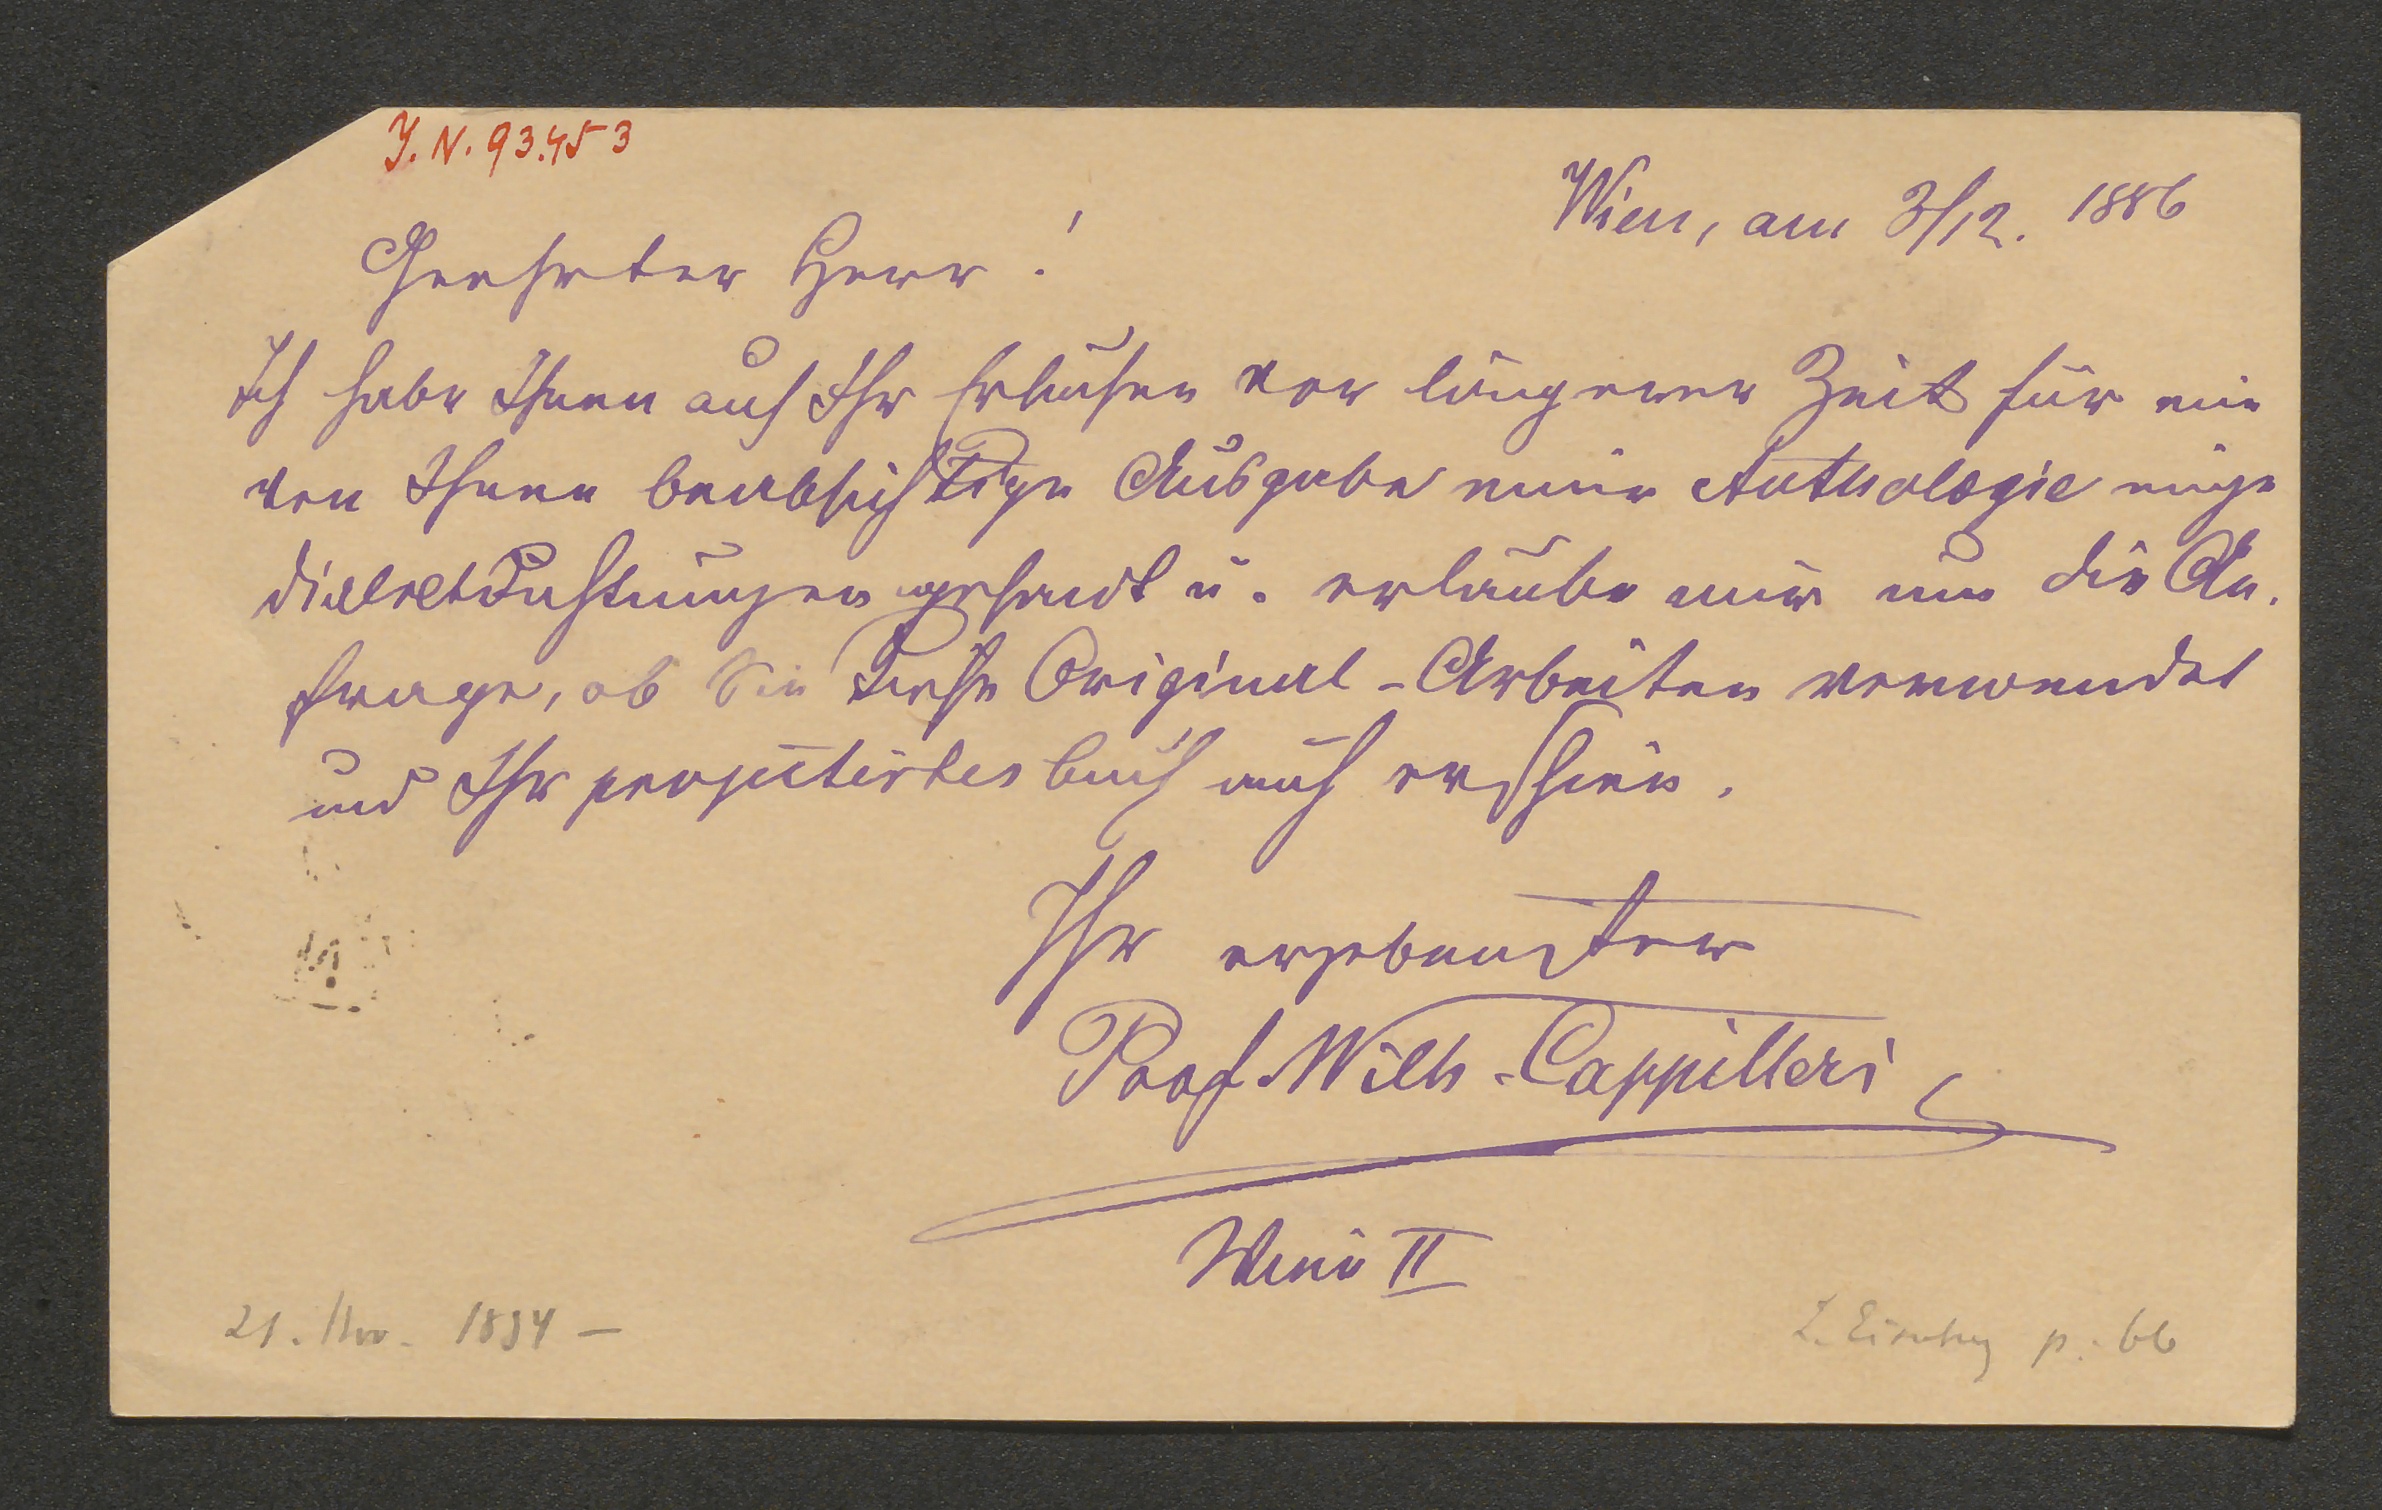 J. N. 93.453
Wien, am 3/12. 1886
Geehrter Herr!
Ich habe Ihnen auf Ihr Ersuchen vor längerer Zeit für eine
von Ihnen beabsichtige Ausgabe einer Anthologie einige
Dialektdichtungen gesandt u. erlaube mir nun die An-
frage, ob Sie diese Original-Arbeiten verwendet
und Ihr projectirtes Buch auch erschien.
Ihr ergebenster
Prof. Wilh. Cappilleri
Wien II
21. Nov. 1834 –
L. Eisenberg p. 66